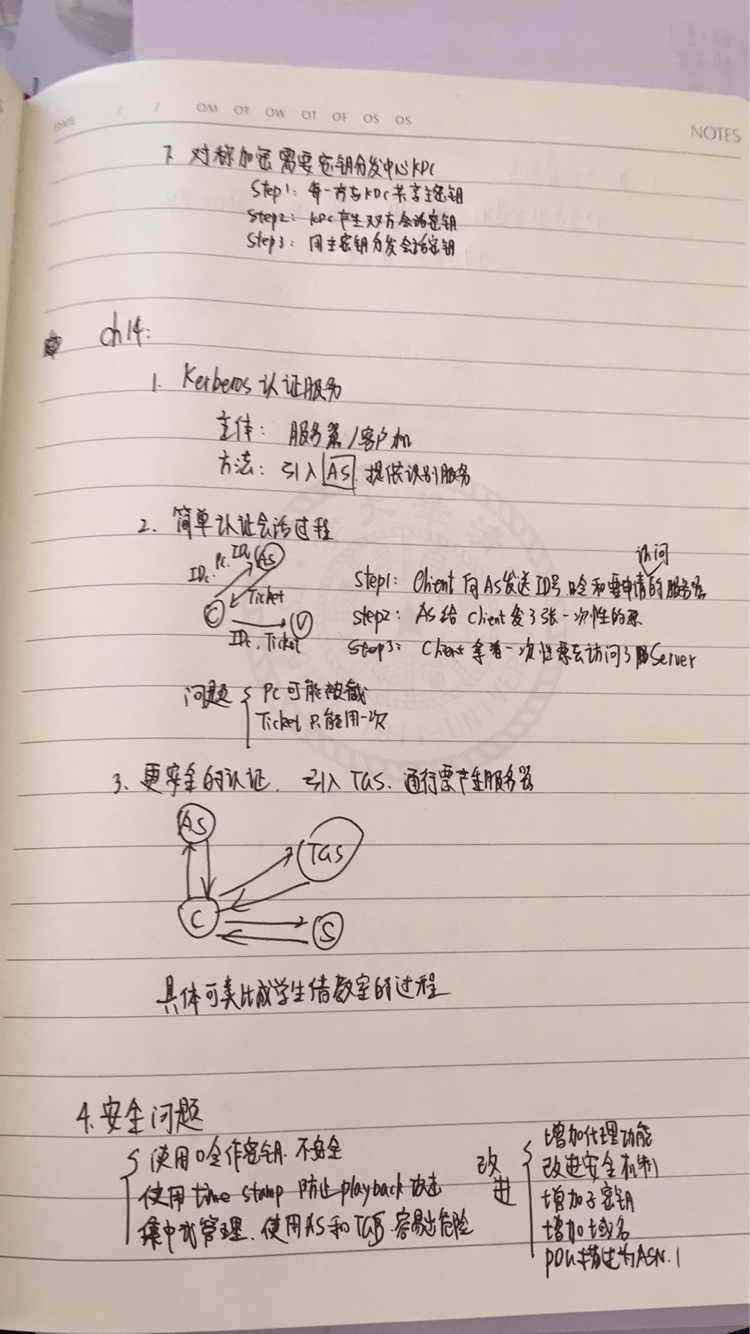 DATE / / OM OT OW OT OF OS OS
NOTES
7. 对称加密需要密钥分发中心KDC
Step1: 每一方与KDC共享主密钥
Step2: KDC产生双方会话密钥
Step3: 用主密钥分发会话密钥
ch14:
1. Kerberos认证服务
主体: 服务器/客户机
方法: 引入AS 提供识别服务
2. 简单认证会话过程
IDc. Pc. IDv
AS
Ticket
C
V
IDc, Ticket
访问
Step1: Client向AS发送ID号 口令和要申请的服务器
Step2: AS给Client发了张一次性的票
Step3: Client拿着一次性票去访问了Server
问题
Pc可能被截
Ticket 只能用一次
3. 更安全的认证. 引入TGS. 通行票产生服务器
AS
TGS
C
S
具体可类比成学生借教室的过程
4. 安全问题
使用口令作密钥. 不安全
使用time stamp 防止playback攻击
集中式管理. 使用AS和TGS. 容易出危险
改进
增加代理功能
改进安全机制
增加子密钥
增加域名
PDU描述为ASN.1